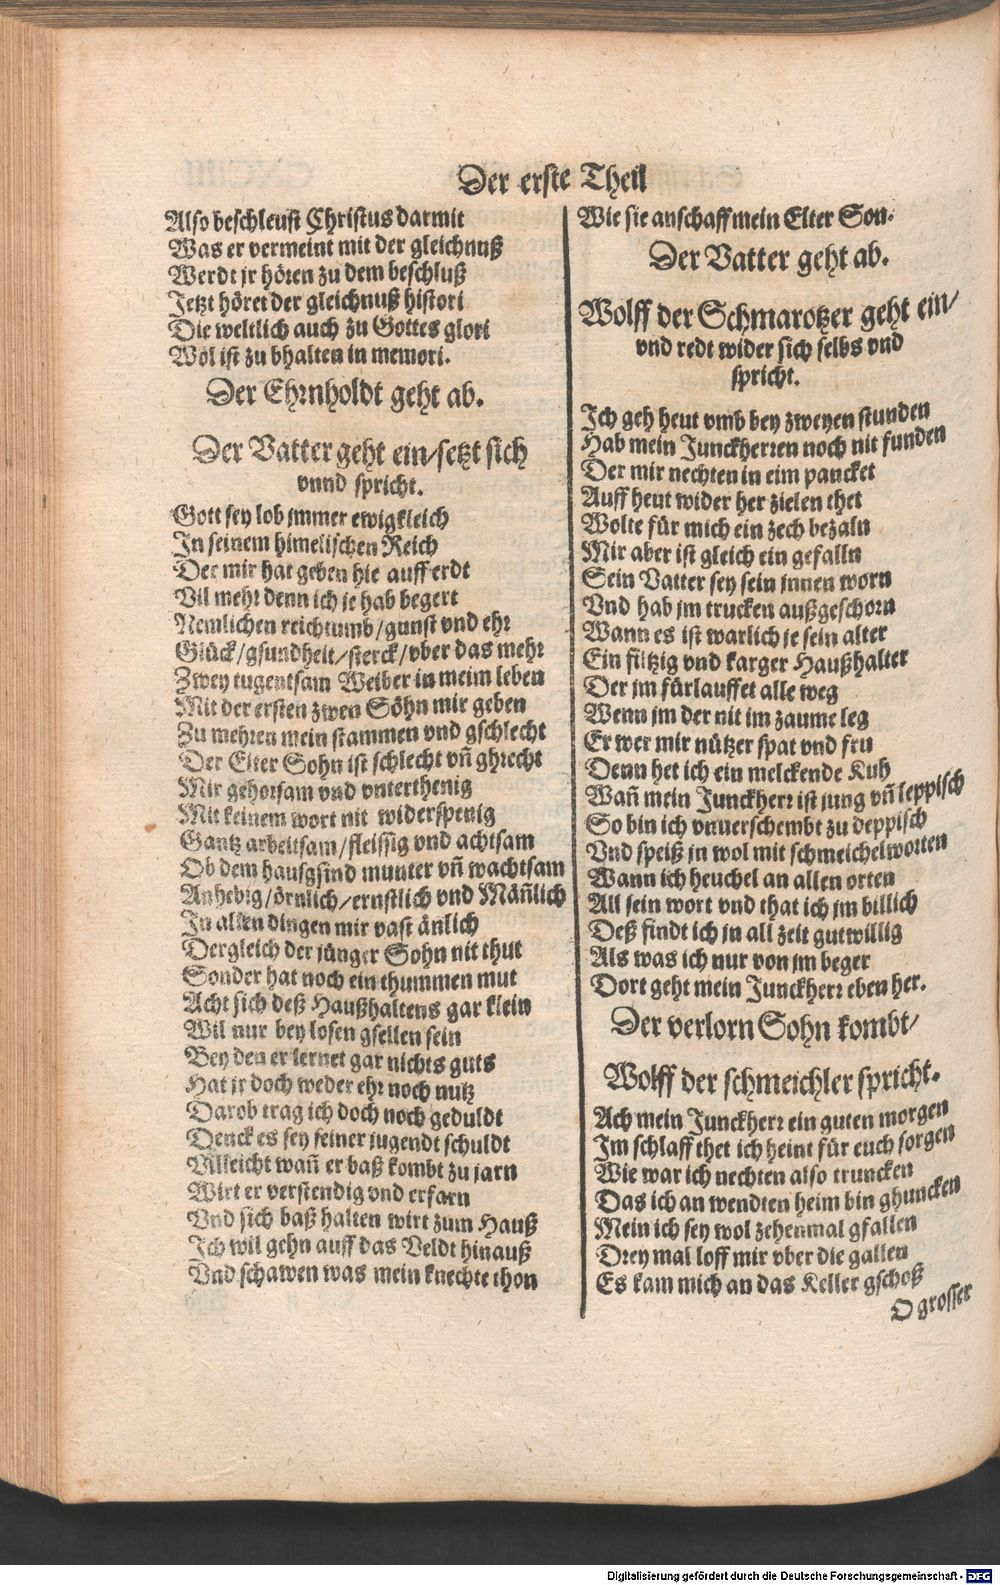 Der erste Theil
Also beschleust Christus darmit
Was er vermeint mit der gleichnuß
Werdt jr hören zu dem beschluß
Jetzt höret der gleichnuß histori
Die weltlich auch zu Gottes glori
Wöl ist zu bhalten in memori.
Der Ehrnholdt geht ab.
Der Vatter geht ein/setzt sich
vnnd spricht.
Gott sey lob jmmer ewigkleich
In seinem himelischen Reich
Der mir hat geben hie auff erdt
Vil mehr denn ich je hab begert
Nemlichen reichtumb/gunst vnd ehr
Glück/gsundheit/sterck/vber das mehr
Zwey tugentsam Weiber in meim leben
Mit der ersten zwen Söhn mir geben
Zu mehren mein stammen vnd gschlecht
Der Elter Sohn ist schlecht vñ ghrecht
Mir gehorsam vnd vnterthenig
Mit keinem wort nit widerspenig
Gantz arbeitsam/fleissig vnd achtsam
Ob dem hausgsind munter vñ wachtsam
Anhebig/örnlich/ernstlich vnd Mäñlich
In allen dingen mir vast änlich
Dergleich der jünger Sohn nit thut
Sonder hat noch ein thummen mut
Acht sich deß Haußhaltens gar klein
Wil nur bey losen gsellen sein
Bey den er lernet gar nichts guts
Hat jr doch weder ehr noch nutz
Darob trag ich doch noch geduldt
Denck es sey seiner jugendt schuldt
Villeicht wañ er baß kombt zu jarn
Wirt er verstendig vnd erfarn
Vnd sich baß halten wirt zum Hauß
Ich wil gehn auff das Veldt hinauß
Vnd schawen was mein knechte thon
Wie sie anschaff mein Elter Son.
Der Vatter geht ab.
Wolff der Schmarotzer geht ein/
vnd redt wider sich selbs vnd
spricht.
Ich geh heut vmb bey zweyen stunden
Hab mein Junckherren noch nit funden
Der mir nechten in eim pancket
Auff heut wider her zielen thet
Wolte für mich ein zech bezaln
Mir aber ist gleich ein gefalln
Sein Vatter sey sein jnnen worn
Vnd hab jm trucken außgeschorn
Wann es ist warlich je sein alter
Ein filtzig vnd karger Haußhalter
Der jm fürlauffet alle weg
Wenn jm der nit im zaume leg
Er wer mir nützer spat vnd fru
Denn het ich ein melckende Kuh
Wañ mein Junckherr ist jung vñ leppisch
So bin ich vnuerschembt zu deppisch
Vnd speiß jn wol mit schmeichelworten
Wann ich heuchel an allen orten
All sein wort vnd that ich jm billich
Deß findt ich jn all zeit gutwillig
Als was ich nur von jm beger
Dort geht mein Junckherr eben her.
Der verlorn Sohn kombt/
Wolff der schmeichler spricht.
Ach mein Junckherr ein guten morgen
Im schlaff thet ich heint für euch sorgen
Wie war ich nechten also truncken
Das ich an wendten heim bin ghuncken
Mein ich sey wol zehenmal gfallen
Drey mal loff mir vber die gallen
Es kam mich an das Keller gschoß
O grosser
Digitalisierung gefördert durch die Deutsche Forschungsgemeinschaft - DFG